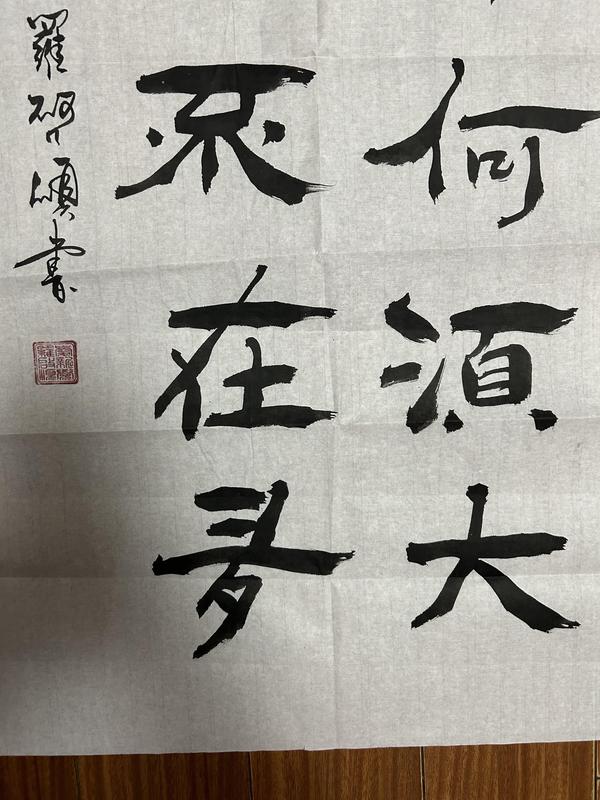 何須大
不在多
羅 書